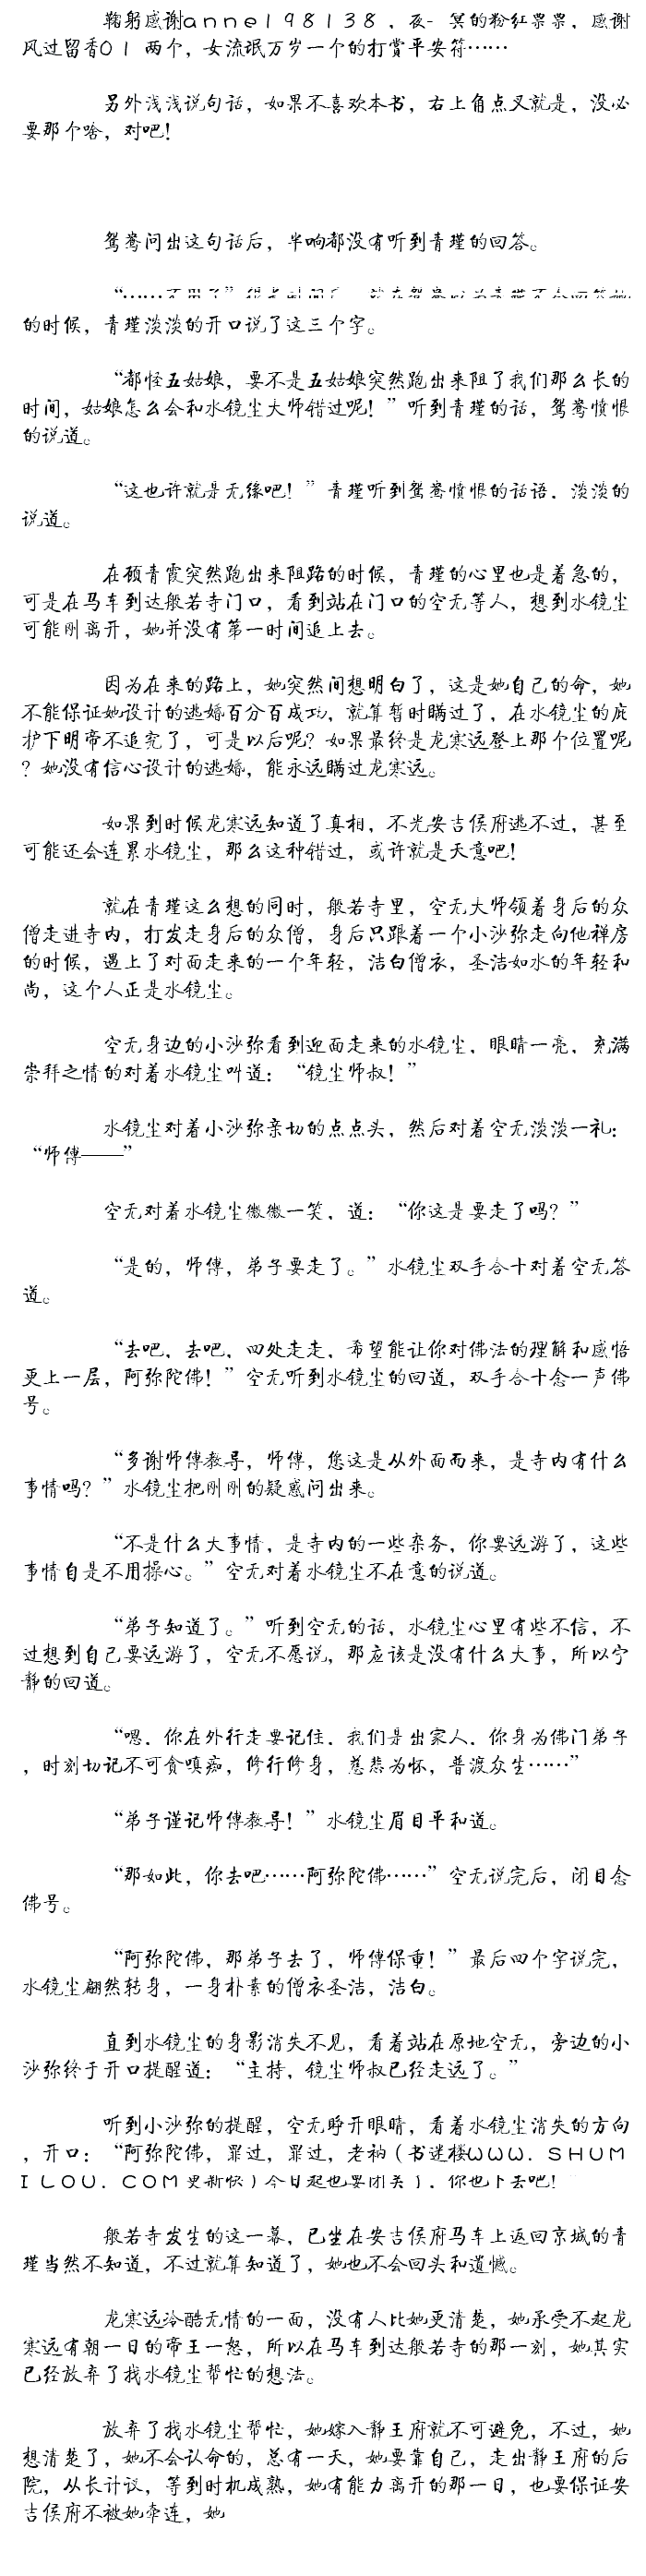 鞠躬感谢ａｎｎｅ１９８１３８，夜-冥的粉红票票，感谢
风过留香０１两个，女流氓万岁一个的打赏平安符……
另外浅浅说句话，如果不喜欢本书，右上角点叉就是，没必
要那个啥，对吧！
鸳鸯问出这句话后，半响都没有听到青瑾的回答。
“……不用了”
的时候，青瑾淡淡的开口说了这三个字。
“都怪五姑娘，要不是五姑娘突然跑出来阻了我们那么长的
时间，姑娘怎么会和水镜尘大师错过呢！”听到青瑾的话，鸳鸯愤恨
的说道。
“这也许就是无缘吧！”青瑾听到鸳鸯愤恨的话语，淡淡的
说道。
在顾青霞突然跑出来阻路的时候，青瑾的心里也是着急的，
可是在马车到达般若寺门口，看到站在门口的空无等人，想到水镜尘
可能刚离开，她并没有第一时间追上去。
因为在来的路上，她突然间想明白了，这是她自己的命，她
不能保证她设计的逃婚百分百成功，就算暂时瞒过了，在水镜尘的庇
护下明帝不追究了，可是以后呢？如果最终是龙寒远登上那个位置呢
？她没有信心设计的逃婚，能永远瞒过龙寒远。
如果到时候龙寒远知道了真相，不光安吉侯府逃不过，甚至
可能还会连累水镜尘，那么这种错过，或许就是天意吧！
就在青瑾这么想的同时，般若寺里，空无大师领着身后的众
僧走进寺内，打发走身后的众僧，身后只跟着一个小沙弥走向他禅房
的时候，遇上了对面走来的一个年轻，洁白僧衣，圣洁如水的年轻和
尚，这个人正是水镜尘。
空无身边的小沙弥看到迎面走来的水镜尘，眼睛一亮，充满
崇拜之情的对着水镜尘叫道：“镜尘师叔！”
水镜尘对着小沙弥亲切的点点头，然后对着空无淡淡一礼：
“师傅——”
空无对着水镜尘微微一笑，道：“你这是要走了吗？”
“是的，师傅，弟子要走了。”水镜尘双手合十对着空无答
道。
“去吧，去吧，四处走走，希望能让你对佛法的理解和感悟
更上一层，阿弥陀佛！”空无听到水镜尘的回道，双手合十念一声佛
号。
“多谢师傅教导，师傅，您这是从外面而来，是寺内有什么
事情吗？”水镜尘把刚刚的疑惑问出来。
“不是什么大事情，是寺内的一些杂务，你要远游了，这些
事情自是不用操心。”空无对着水镜尘不在意的说道。
“弟子知道了。”听到空无的话，水镜尘心里有些不信，不
过想到自己要远游了，空无不愿说，那应该是没有什么大事，所以宁
静的回道。
“嗯，你在外行走要记住，我们是出家人，你身为佛门弟子
，时刻切记不可贪嗔痴，修行修身，慈悲为怀，普渡众生……”
“弟子谨记师傅教导！”水镜尘眉目平和道。
“那如此，你去吧……阿弥陀佛……”空无说完后，闭目念
佛号。
“阿弥陀佛，那弟子去了，师傅保重！”最后四个字说完，
水镜尘翩然转身，一身朴素的僧衣圣洁，洁白。
直到水镜尘的身影消失不见，看着站在原地空无，旁边的小
沙弥终于开口提醒道：“主持，镜尘师叔已经走远了。”
听到小沙弥的提醒，空无睁开眼睛，看着水镜尘消失的方向
，开口：“阿弥陀佛，罪过，罪过，老衲（书迷楼ＷＷＷ．ＳＨＵＭ
ＩＬＯＵ．ＣＯＭ更新快）今日起也要闭关了，你也下去吧！”
般若寺发生的这一幕，已坐在安吉侯府马车上返回京城的青
瑾当然不知道，不过就算知道了，她也不会回头和遗憾。
龙寒远冷酷无情的一面，没有人比她更清楚，她承受不起龙
寒远有朝一日的帝王一怒，所以在马车到达般若寺的那一刻，她其实
已经放弃了找水镜尘帮忙的想法。
放弃了找水镜尘帮忙，她嫁入静王府就不可避免，不过，她
想清楚了，她不会认命的，总有一天，她要靠自己，走出静王府的后
院，从长计议，等到时机成熟，她有能力离开的那一日，也要保证安
吉侯府不被她牵连，她